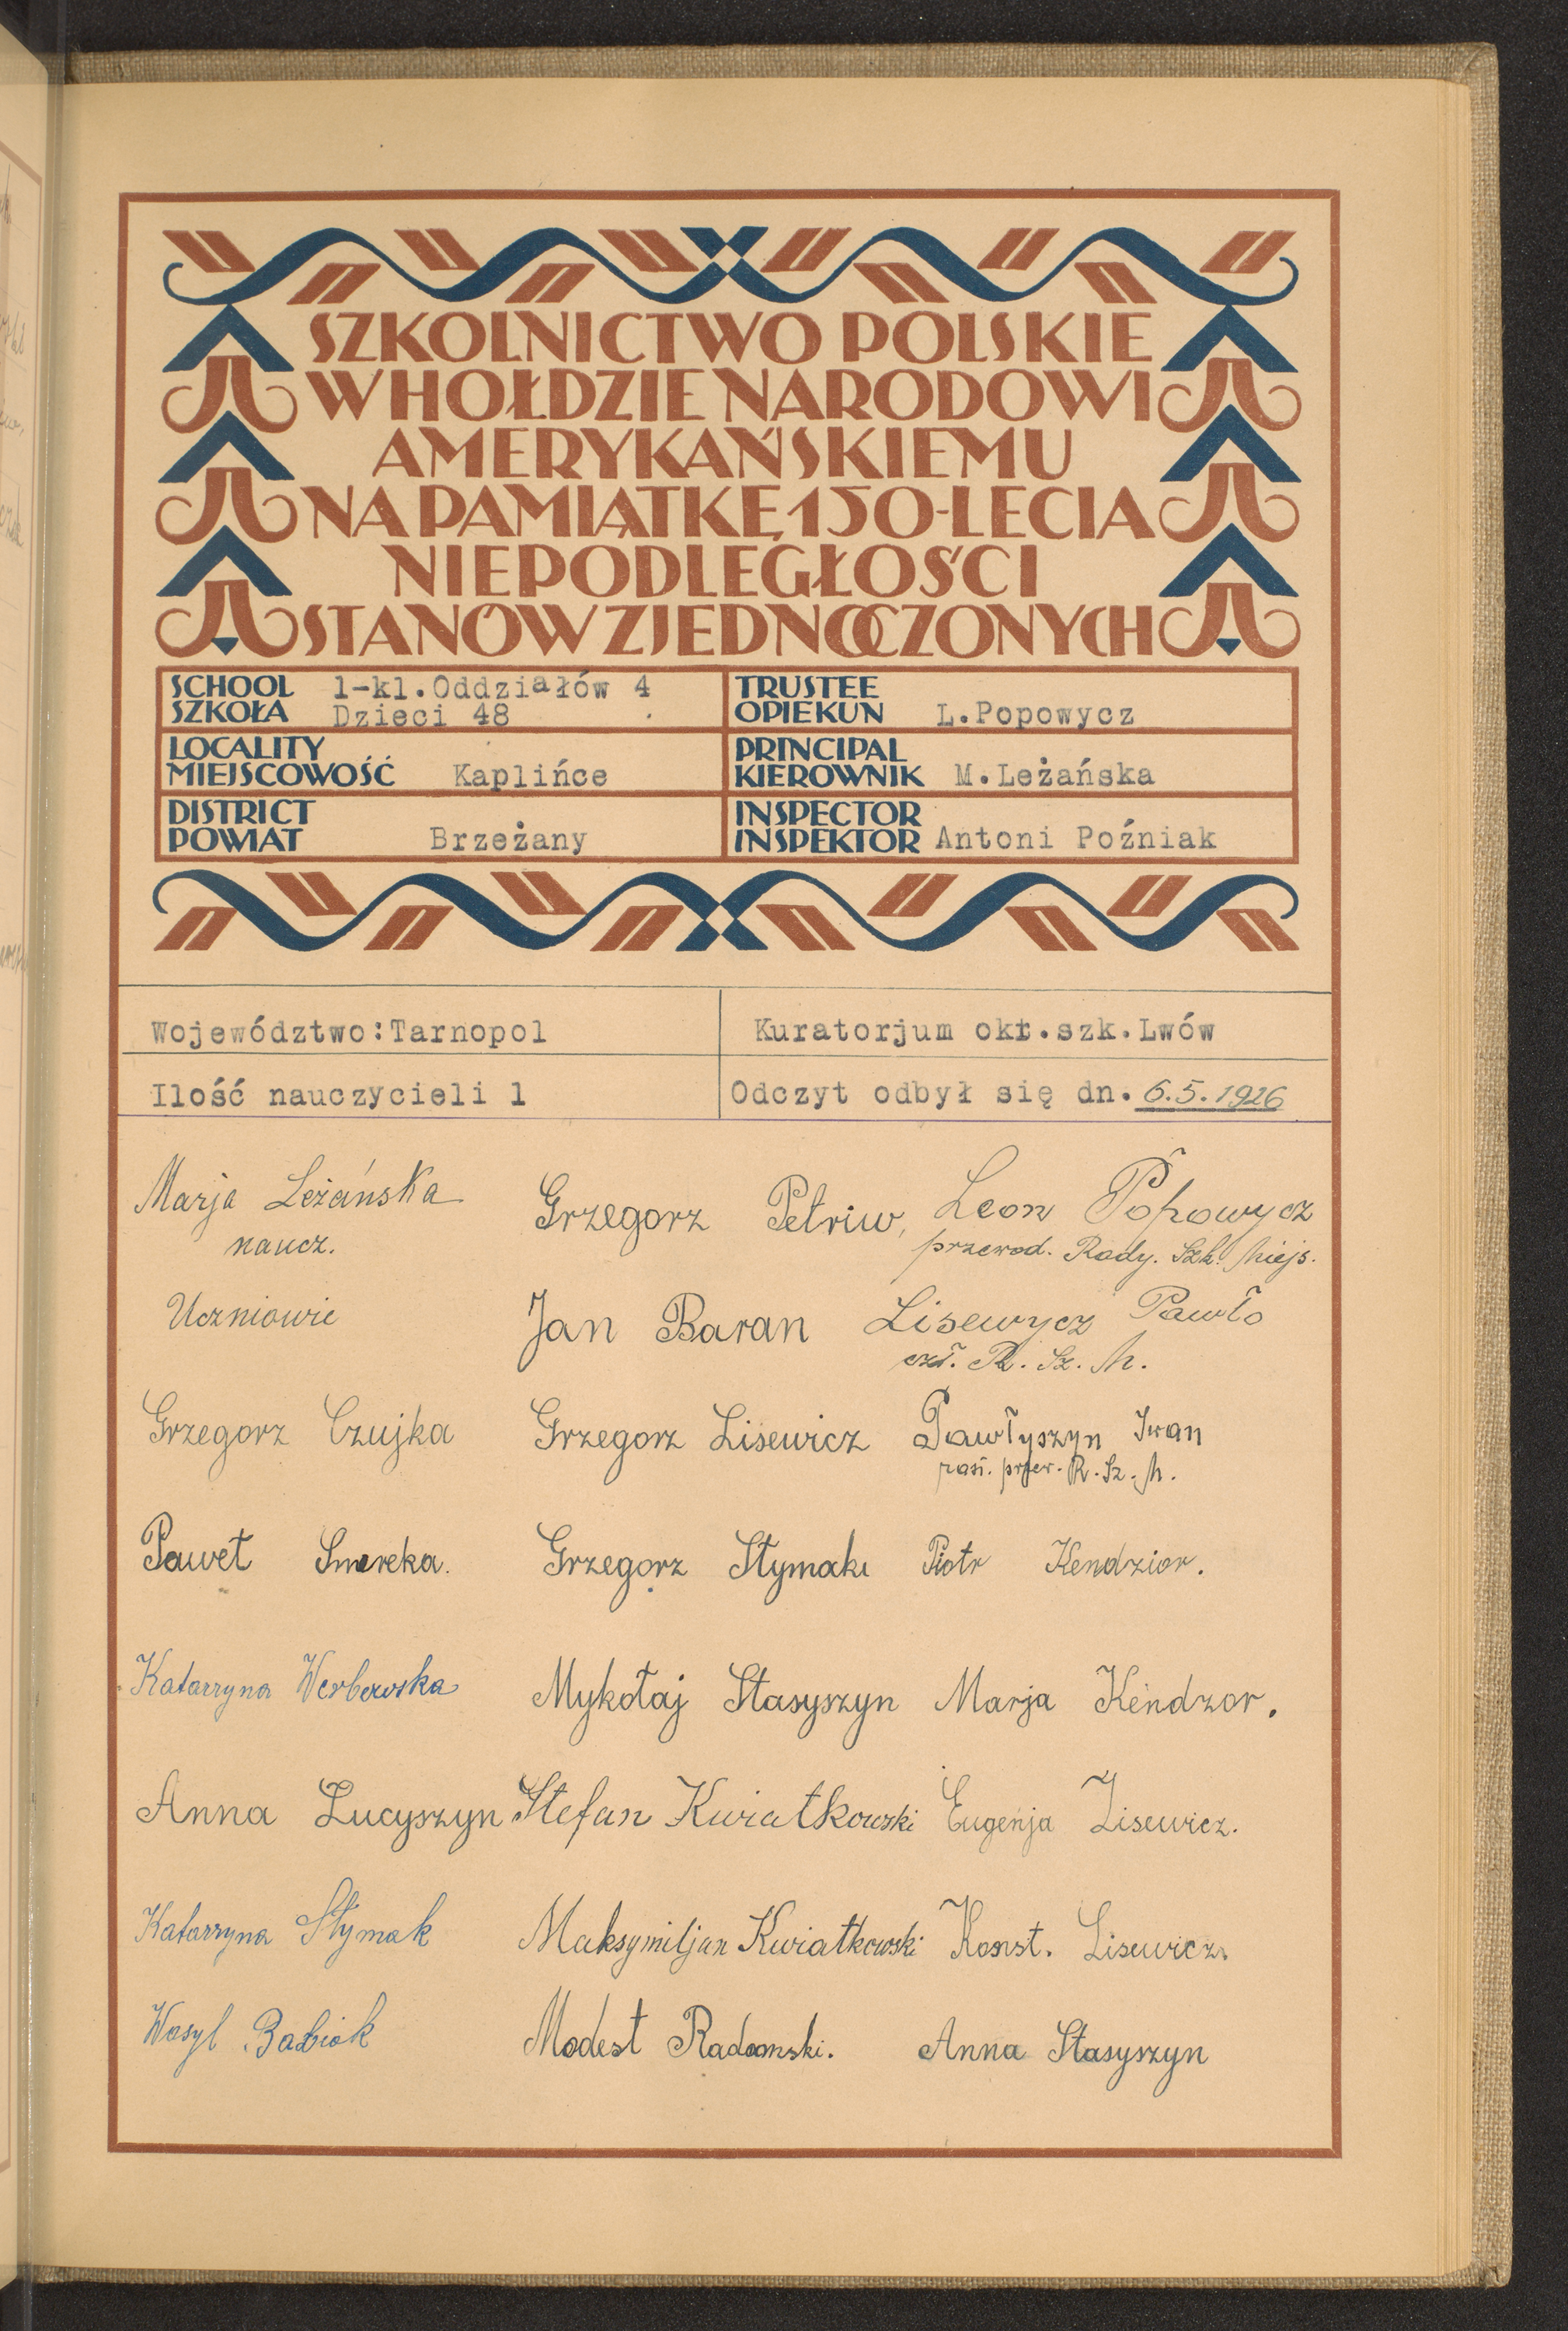 SZKOLNICTWO POLSKIE
W HOŁDZIE NARODOWI
AMERYKAŃSKIEMU
NA PAMIĄTKĘ 150-LECIA
NIEPODLEGŁOŚCI
STANÓW ZJEDNOCZONYCH
SCHOOL
SZKOŁA
1-kl.Oddziałów 4
Dzieci 48
TRUSTEE
OPIEKUN L.Popowycz
LOCALITY
MIEJSCOWOŚĆ Kaplińce
PRINCIPAL
KIEROWNIK M.Leżańska
DISTRICT
POWIAT Brzeżany
INSPECTOR
INSPEKTOR Antoni Poźniak
Województwo:Tarnopol
Kuratorjum okr.szk.Lwów
Ilość nauczycieli 1
Odczyt odbył się dn. 6.5.1926
Marja Leżańska
naucz.
Uczniowie
Grzegorz Czujka
Paweł Smereka.
Katarzyna Werbowska
Anna Łucyszyn
Katarzyna Stymak
Wasyl Babiak
Grzegorz Petriw,
Jan Baran
Grzegorz Lisewicz
Grzegorz Stymak
Mykołaj Stasyszyn
Stefan Kwiatkowski
Maksymiljan Kwiatkowski
Modest Radomski.
Leon Popowycz
przewod. Rady. Szk. Miejs.
Lisewycz Pawło
czł. R. Sz. M.
Pawłyszyn Iwan
zast. przew. R. Sz. M.
Piotr Kendzior.
Marja Kendzor.
Eugenja Lisewicz.
Konst. Lisewicz.
Anna Stasyszyn